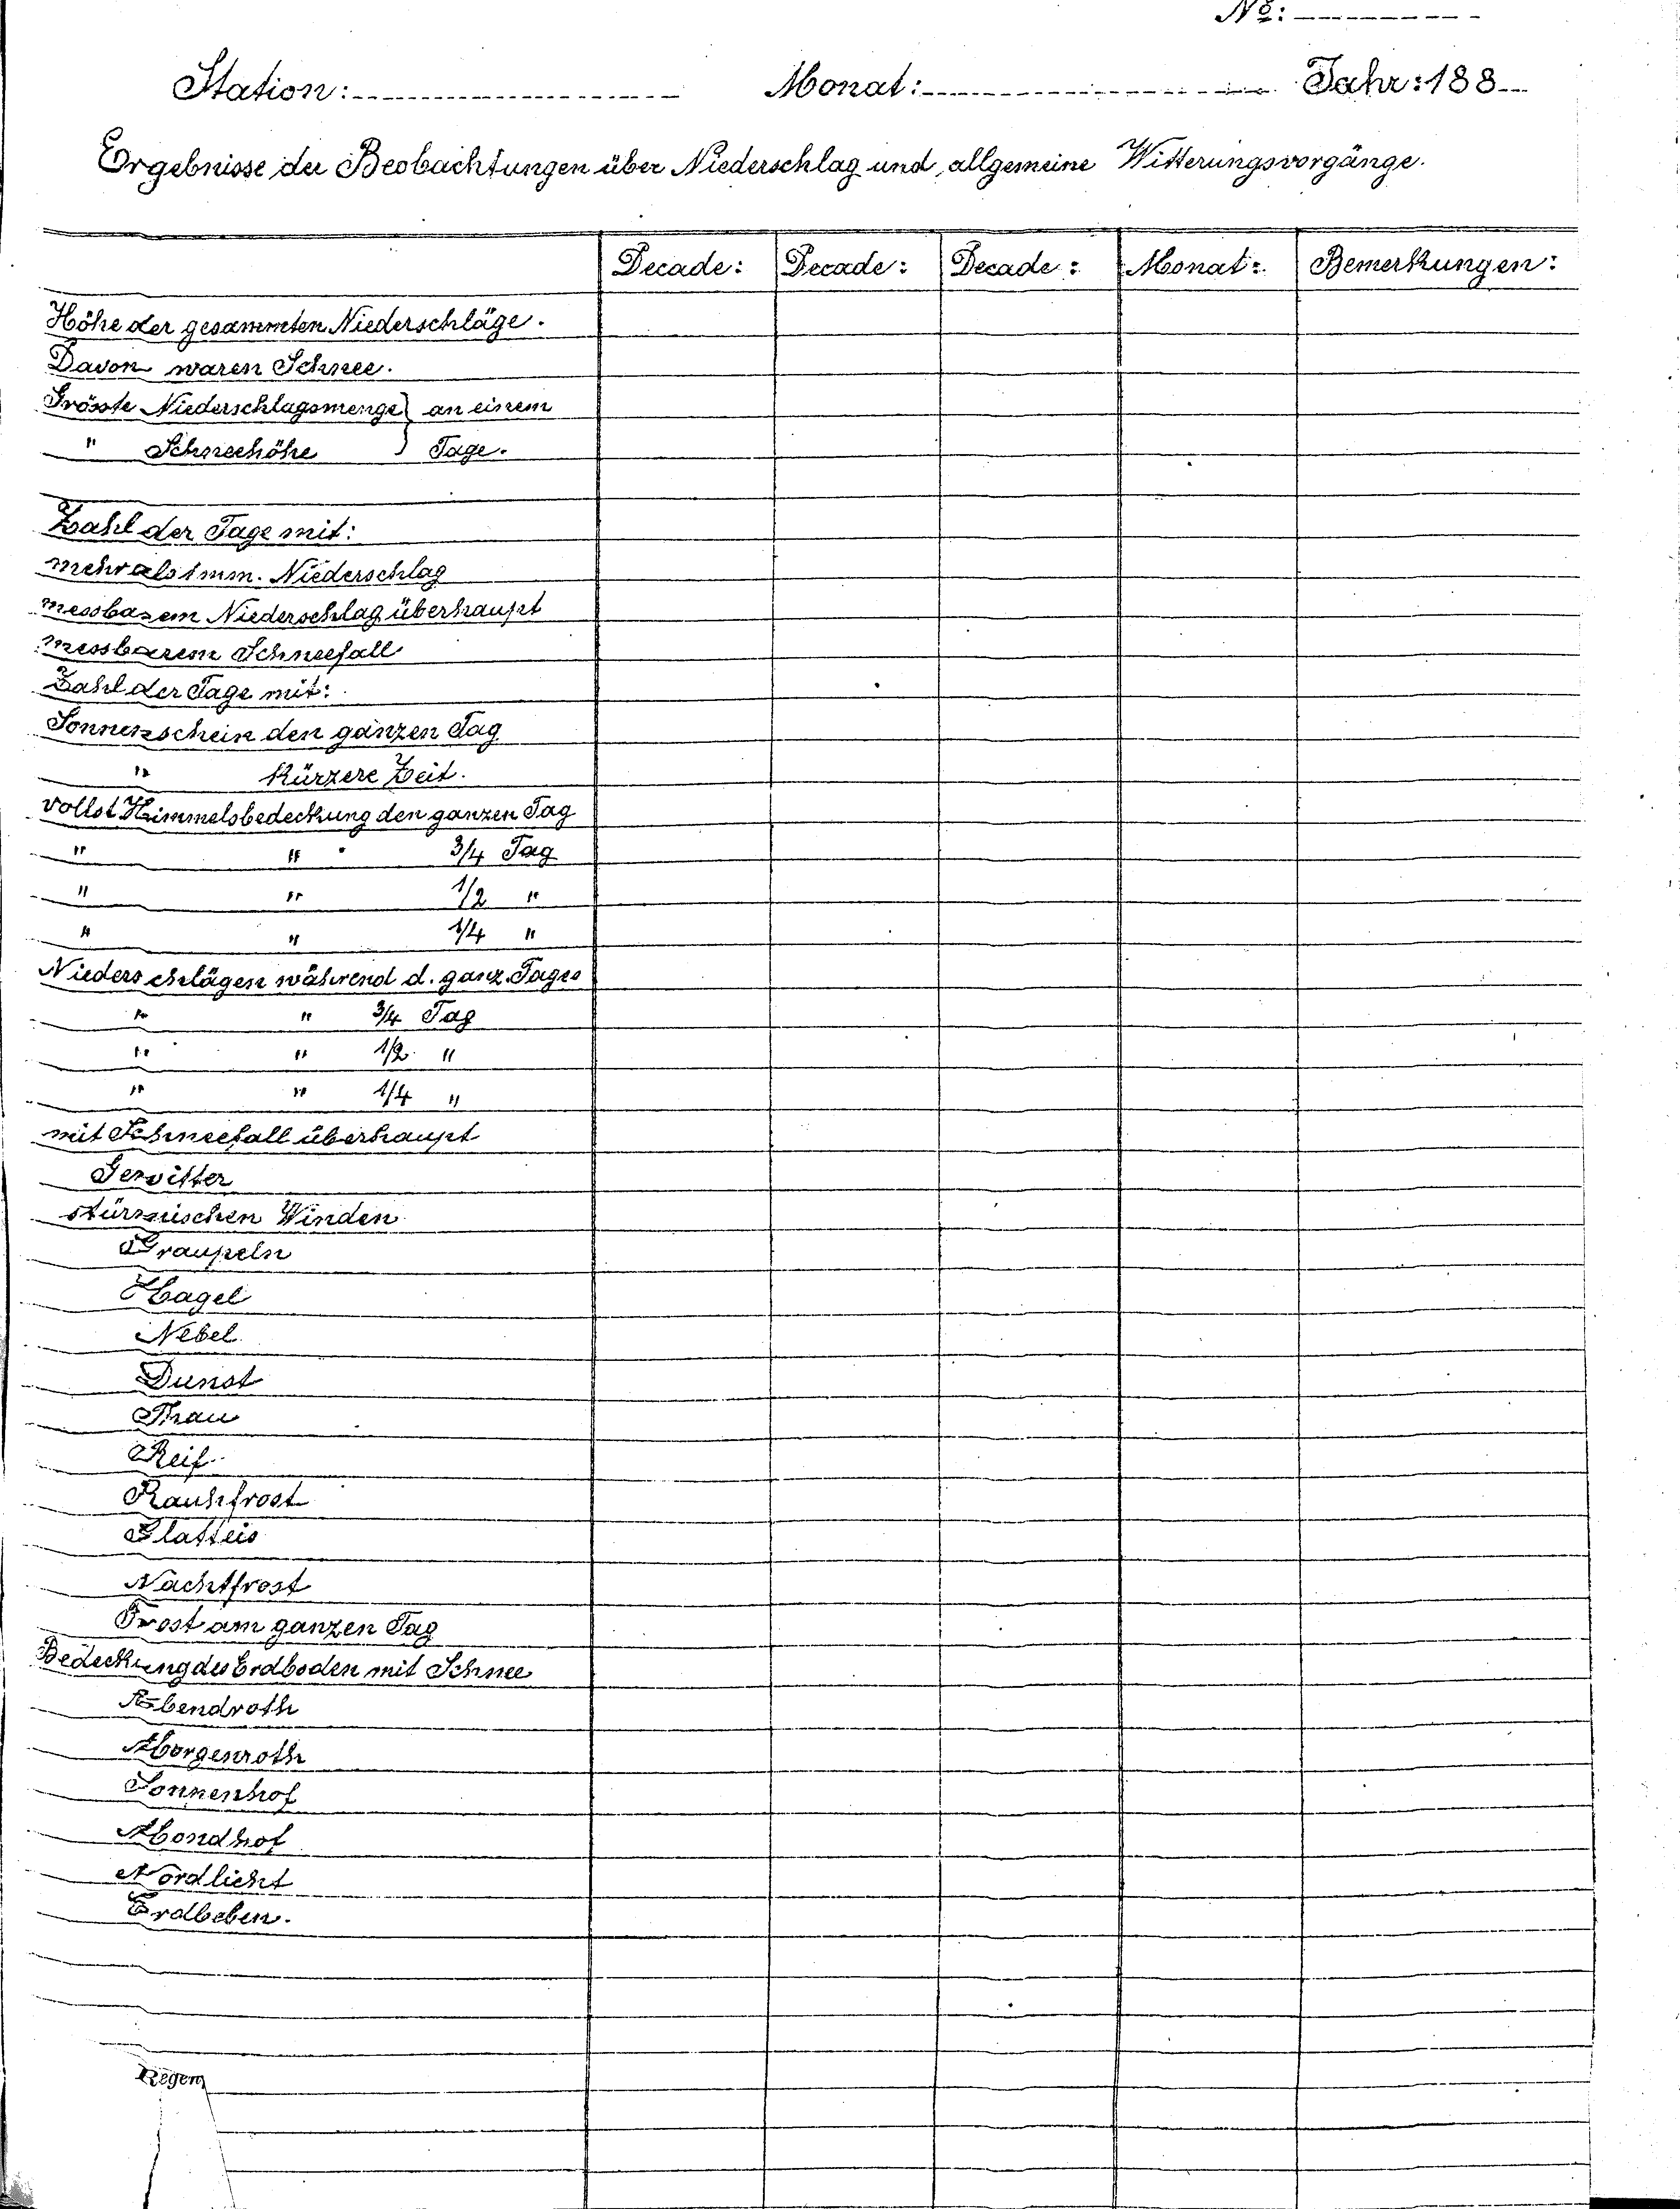 No: ----------
Station: -------------------- Monat: -------------------- Jahr: 188__
Ergebnisse der Beobachtungen über Niederschlag und allgemeine Witterungsvorgänge.
Decade: Decade: Decade: Monat: Bemerkungen:
Höhe der gesammten Niederschläge.
Davon waren Schnee.
Grösste Niederschlagsmenge } an einem
" Schneehöhe } Tage.
Zahl der Tage mit:
mehr als 1 mm. Niederschlag
messbarem Niederschlag überhaupt
messbarem Schneefall
Zahl der Tage mit:
Sonnenschein den ganzen Tag
" kürzere Zeit.
vollst Himmelsbedeckung den ganzen Tag
" " 3/4 Tag
" " 1/2 "
" " 1/4 "
Niederschlägen während d. ganz. Tages
" " 3/4 Tag
" " 1/2 "
" " 1/4 "
mit Schneefall überhaupt
Gewitter
stürmischen Winden
Graupeln
Hagel
Nebel
Dunst
Thau
Reif
Rauhfrost
Glatteis
Nachtfrost
Frost am ganzen Tag
Bedeckung des Erdboden mit Schnee
Abendroth
Morgenroth
Sonnenhof
Mondhof
Nordlicht
Erdbeben.
Regen